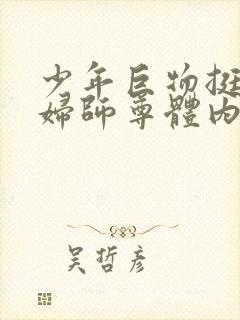 少年巨物挺
婦師尊體內
吴哲彦